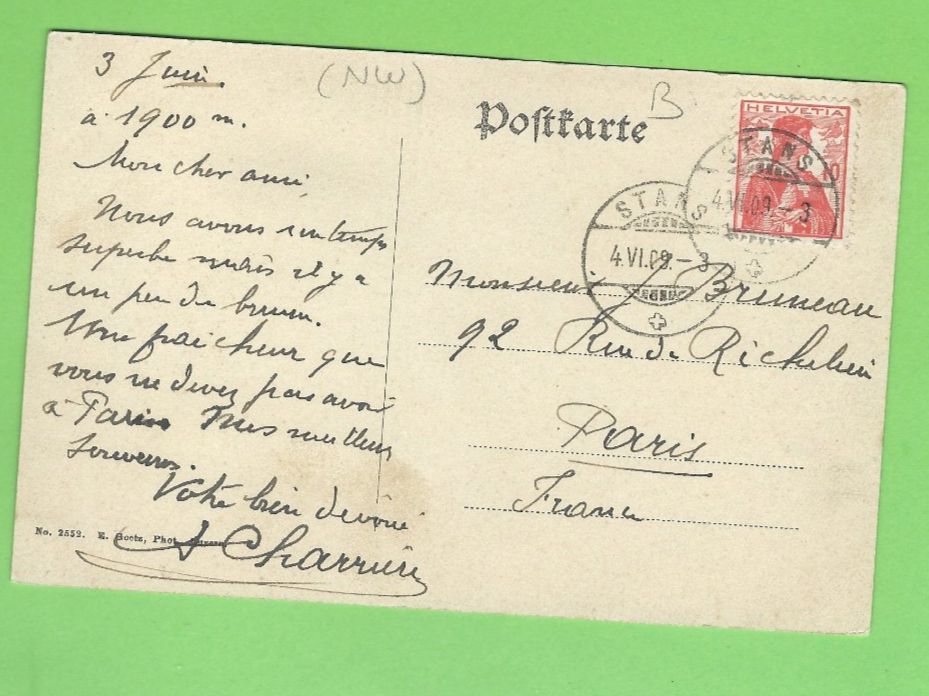 3 Juin
(NW)
B
à 1900 m.
Postkarte
HELVETIA
10
Mon cher ami
Nous avons un temps
superbe mais il y a
un peu de brume.
Une fraicheur que
vous ne devez pas avoir
à Paris Mes meilleurs
souvenirs.
Votre bien dévoué
A Charrière
No. 2552. E. Goetz, Phot. Luzern
STANS
4.VI.09.-3
STANS
4.VI.09.-3
Monsieur J Bruneau
92 Rue de Richelieu
Paris
France